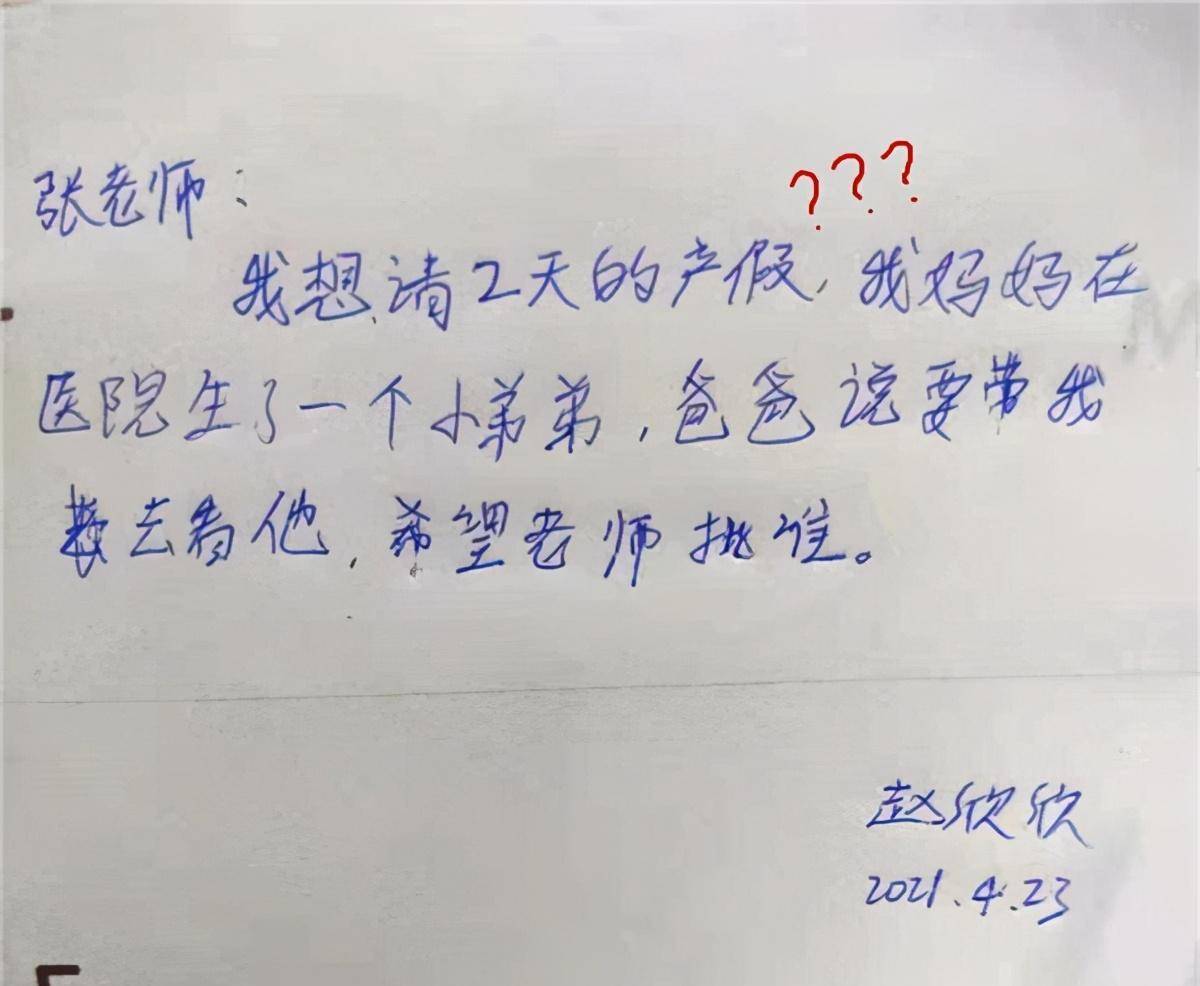 ???
张老师：
我想请2天的产假，我妈妈在
医院生了一个小弟弟，爸爸说要带我
去看他，希望老师批准。
赵欣欣
2021.4.23